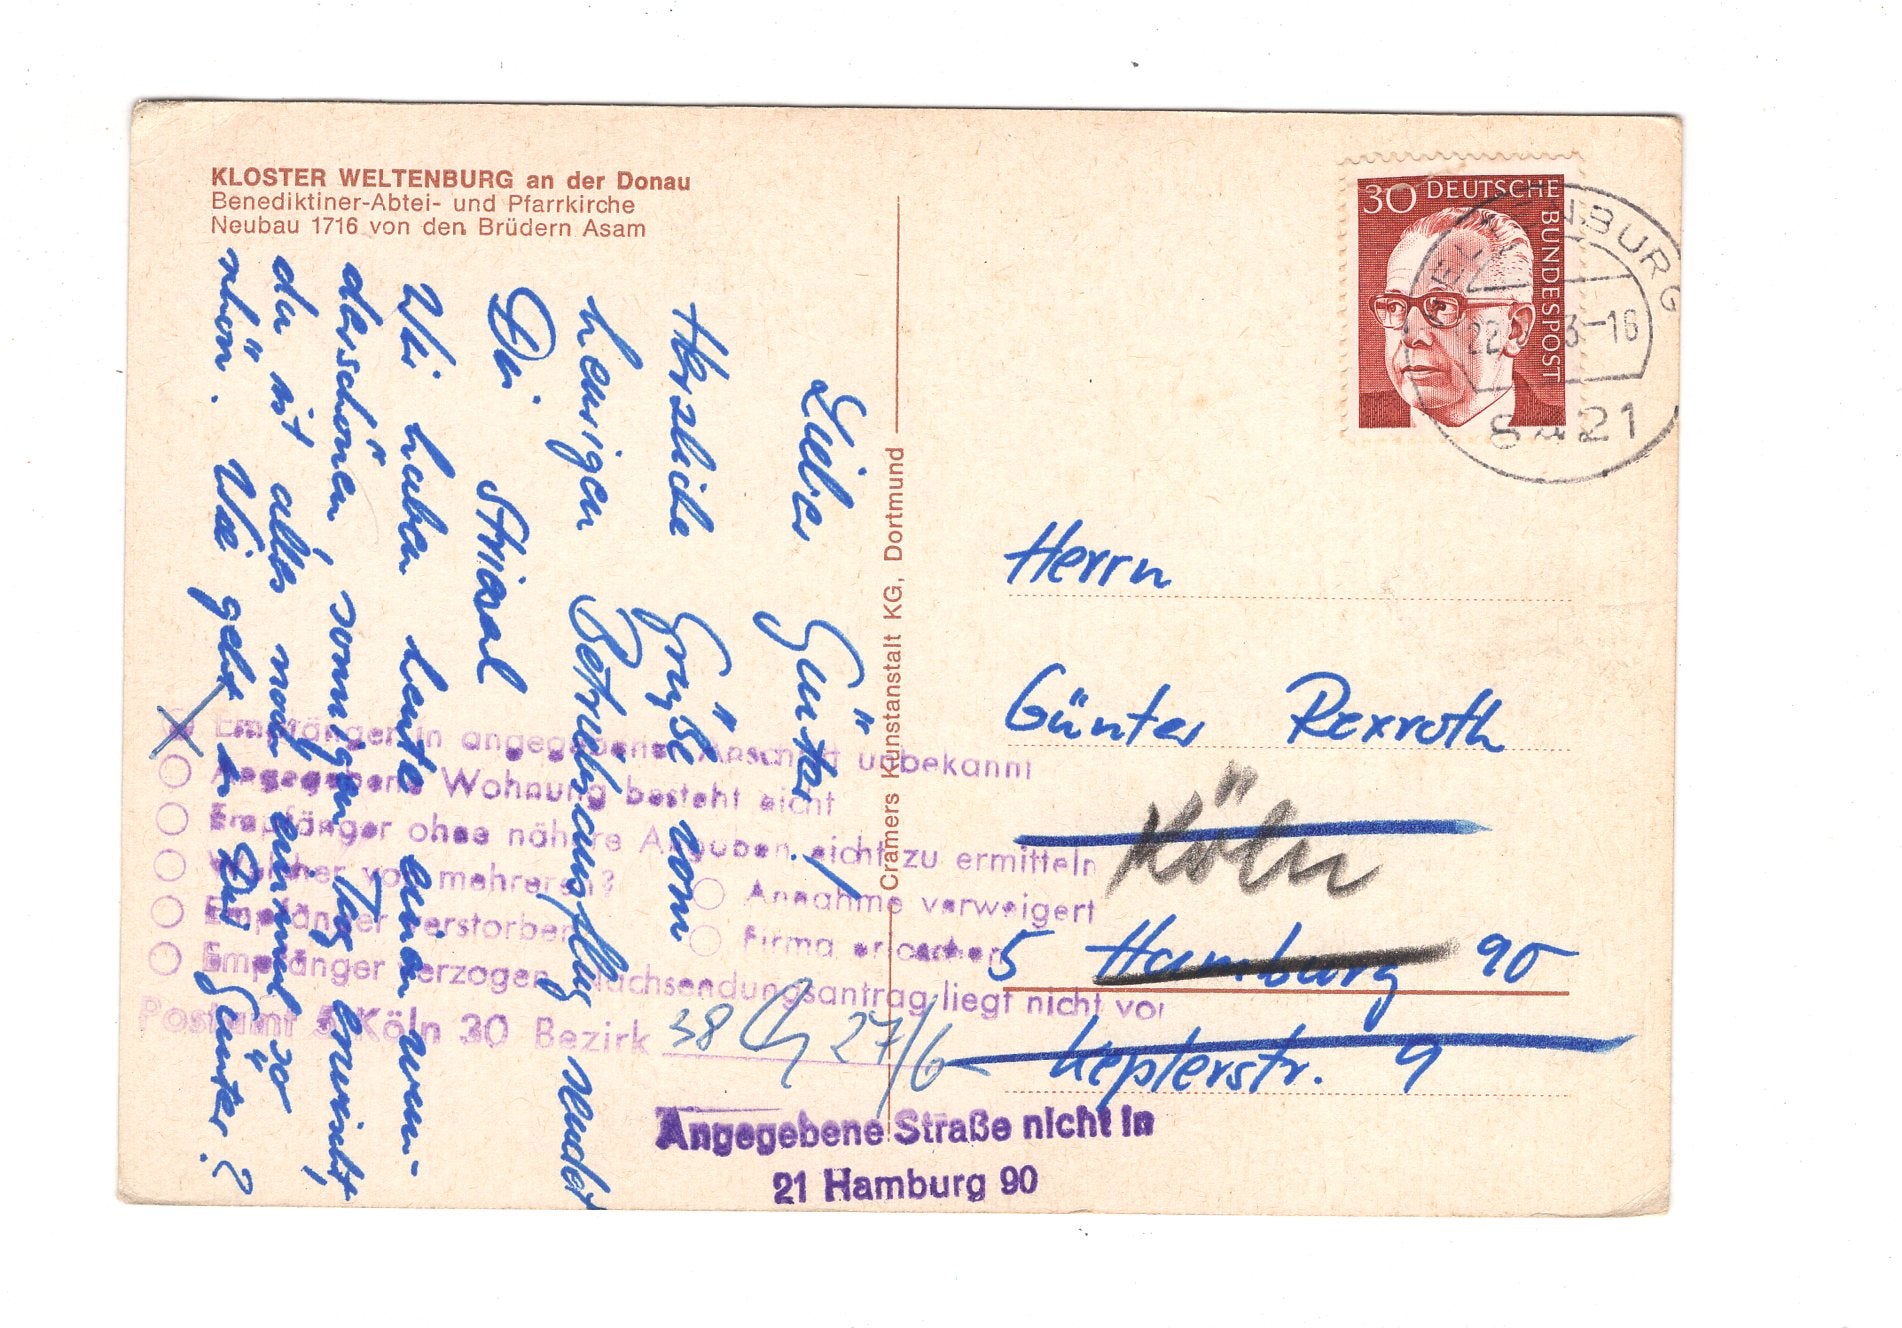 KLOSTER WELTENBURG an der Donau
Benediktiner-Abtei- und Pfarrkirche
Neubau 1716 von den Brüdern Asam
Lieber Günter!
Herzliche Grüße vom
heurigen Betriebsausflug sendet
Dir
Wir haben heute einen
derschönen sonnigen Tag erwischt,
da ist alles noch einmal so
schön. Wie geht es Dir Günter?
Cramers Kunstanstalt KG, Dortmund
30 DEUTSCHE
BUNDESPOST
WELTENBURG
22. 3-16
8421
Herrn
Günter Rexroth
Köln
5 Hamburg 90
Keplerstr. 9
Empfänger in angegebener Anschrift unbekannt
Angegebene Wohnung besteht nicht
Empfänger ohne nähere Angaben nicht zu ermitteln
Welcher von mehreren? Annahme verweigert
Empfänger verstorben Firma erloschen
Empfänger verzogen, Nachsendungsantrag liegt nicht vor
Postamt 5 Köln 30 Bezirk 38 27/6
Angegebene Straße nicht in
21 Hamburg 90